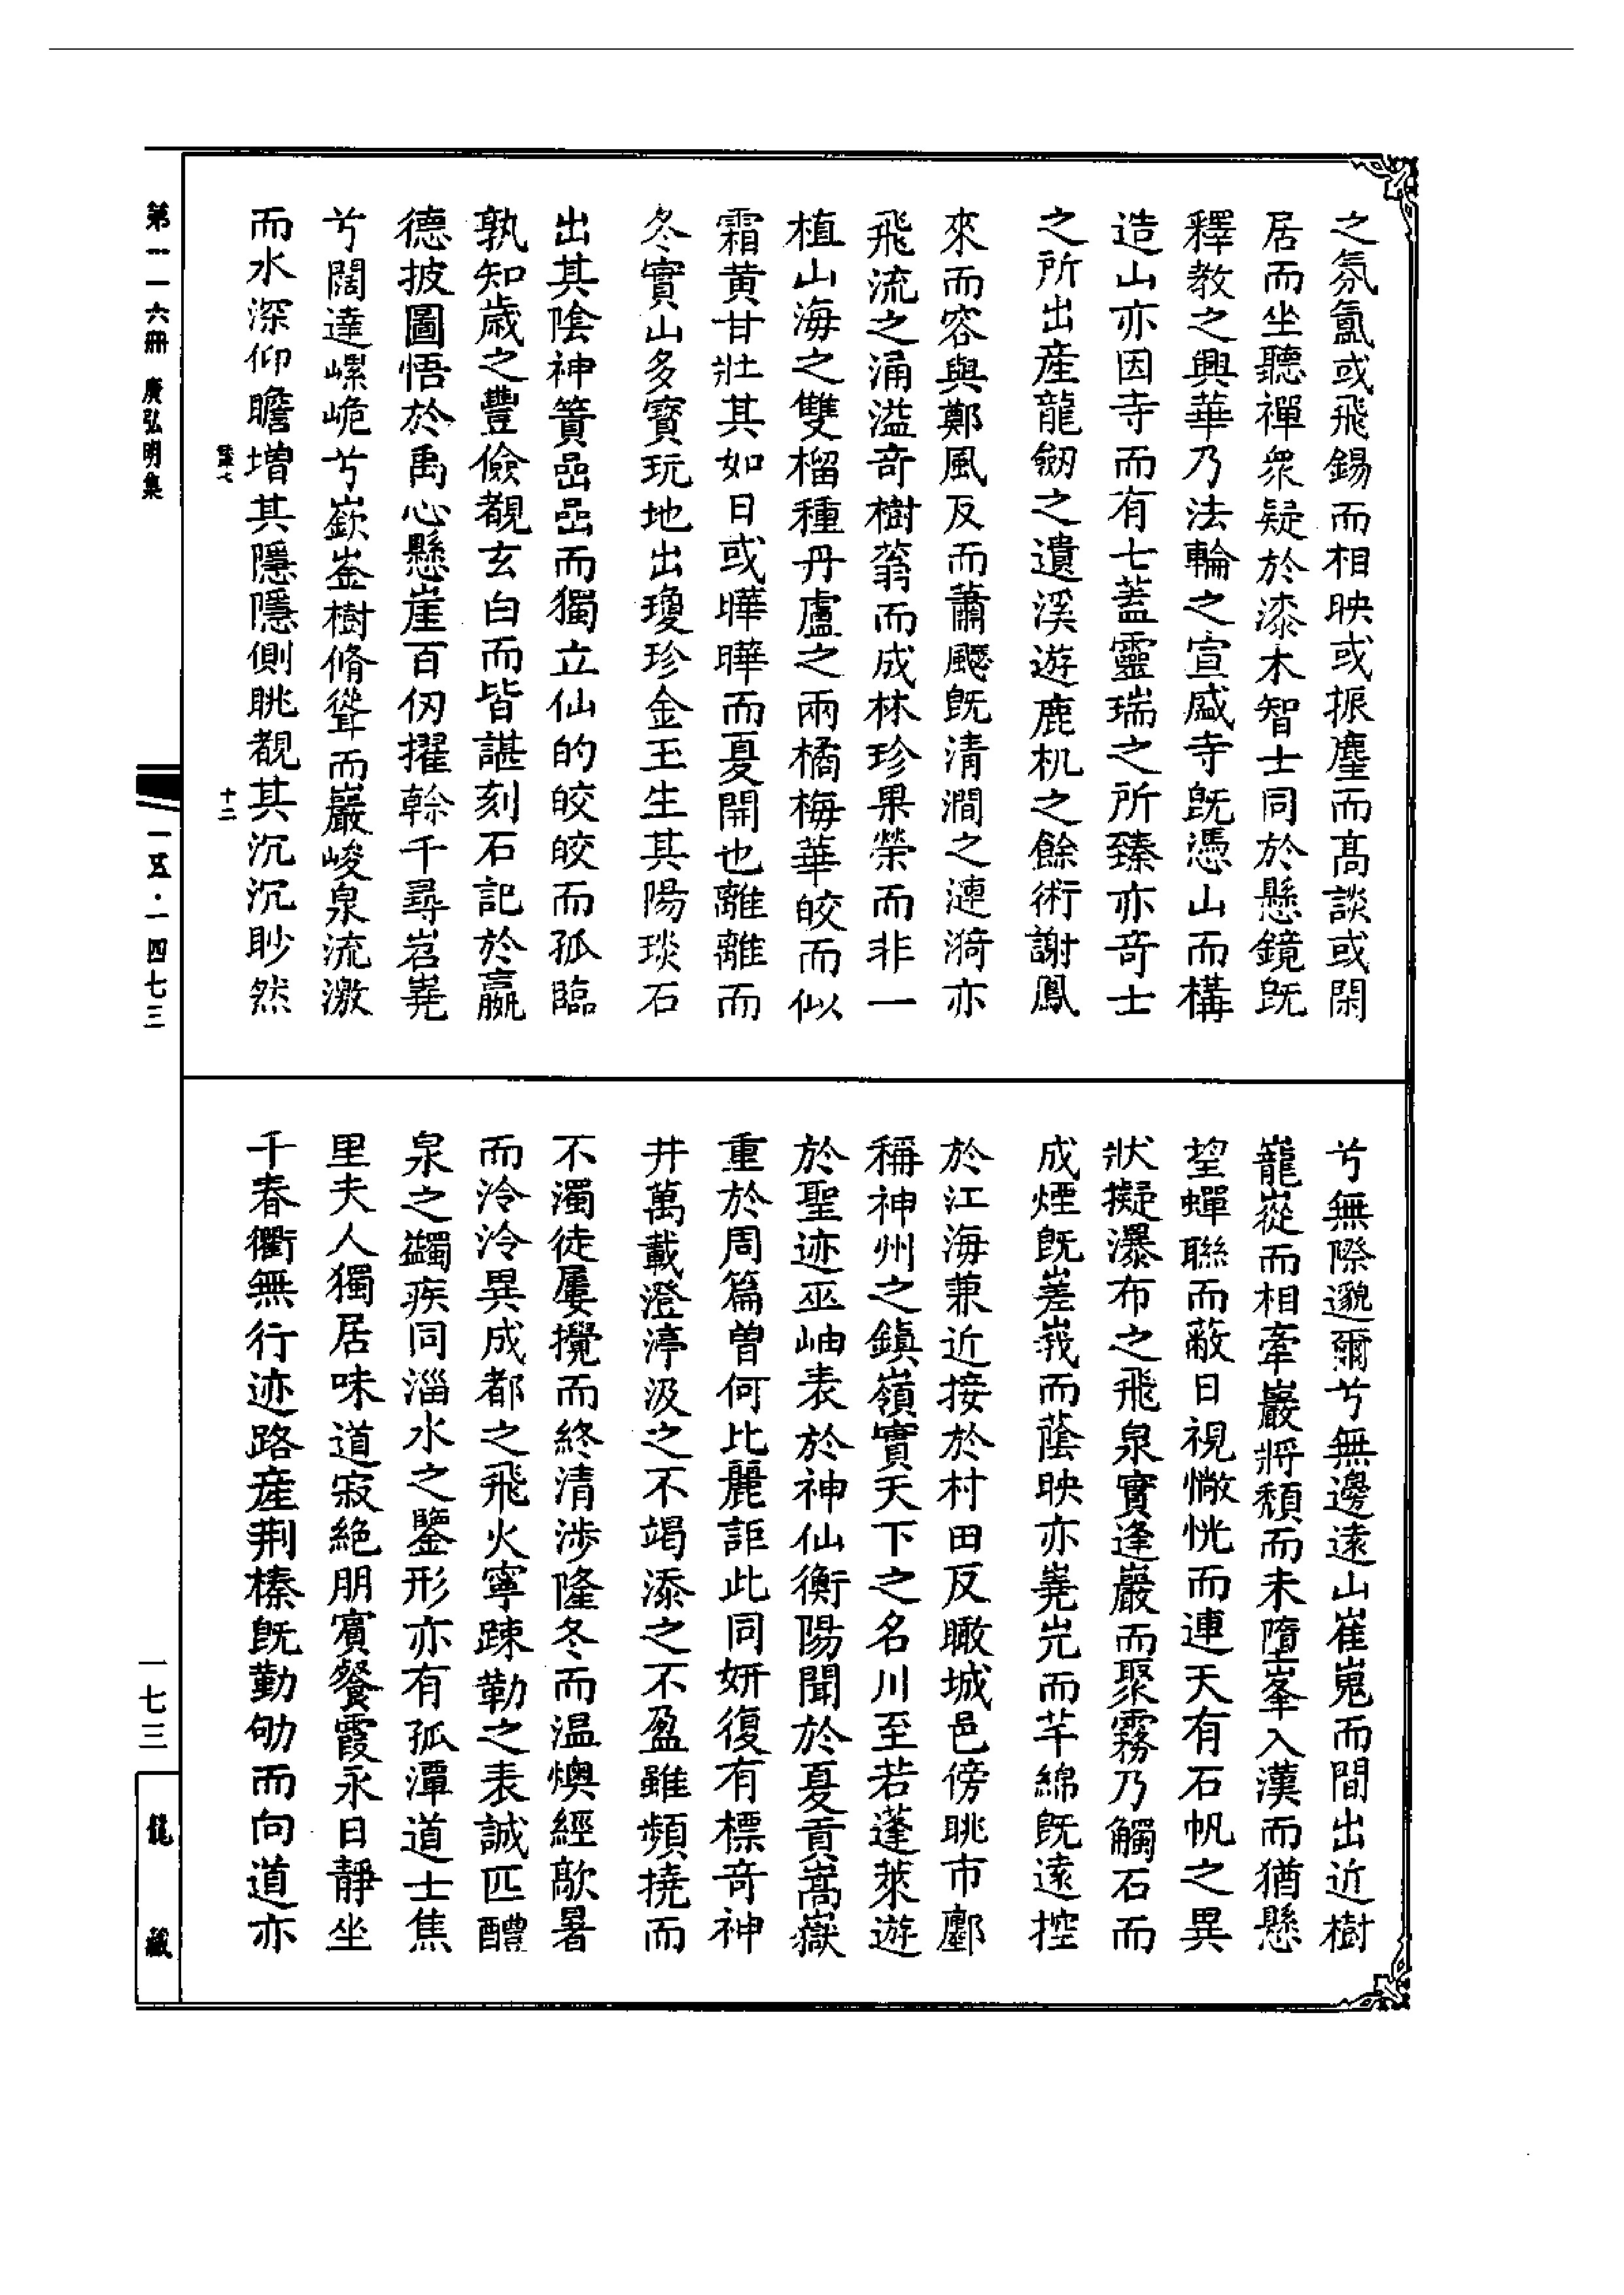 之氛氳或飛錫而相映或振麈而高談或閑
居而坐聽禪衆疑於漆木智士同於懸鏡旣
釋教之興華乃法輪之宣盛寺旣憑山而構
造山亦因寺而有七蓋靈瑞之所臻亦奇士
之所出産龍劒之遺溪遊鹿机之餘術謝鳳
來而容與鄭風反而蕭飋旣清澗之漣漪亦
飛流之涌溢奇樹蓊而成林珍果榮而非一
植山海之雙榴種丹盧之兩橘梅華皎而似
霜黃甘壯其如日或曄曄而夏開也離離而
冬實山多寳玩地出瓊珍金玉生其陽琰石
出其陰神簣嵒嵒而獨立仙的皎皎而孤臨
孰知歲之豐儉覩玄白而皆諶刻石記於嬴
德披圖悟於禹心懸崖百仭擢榦千尋岧嶤
兮闊達嵺峗兮嶔崟樹脩聳而巖峻泉流激
而水深仰瞻增其隱隱側眺覩其沉沉眇然
兮無際邈爾兮無邊遠山崔嵬而間出近樹
巃嵷而相牽巖將頹而未墮峯入漢而猶懸
望蟬聯而蔽日視懒恍而連天有石帆之異
狀擬瀑布之飛泉實逢巖而聚霧乃觸石而
成煙旣嵳峩而蔭映亦嶤屼而芊綿旣遠控
於江海兼近接於村田反瞰城邑傍眺市鄽
稱神州之鎭嶺實天下之名川至若蓬萊遊
於聖迹巫岫表於神仙衡陽聞於夏貢嵩嶽
重於周篇曾何比麗詎此同妍復有標奇神
井萬載澄渟汲之不竭添之不盈雖頻撓而
不濁徒屢攪而終清涉隆冬而温燠經歊暑
而泠泠異成都之飛火寧踈勒之表誠匹醴
泉之蠲疾同淄水之鑒形亦有孤潭道士焦
里夫人獨居味道寂絶朋賓餐霞永日靜坐
千春衢無行迹路産荆榛旣勤劬而向道亦
第一一六冊 廣弘明集
十二
一五·一四七三
一七三
龍藏